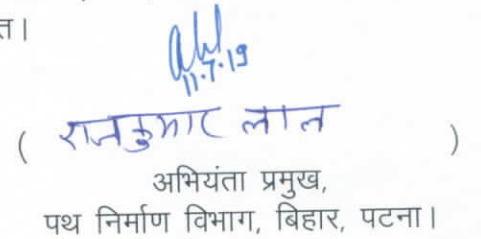 त।
11.7.19
( राजकुमार लाल )
अभियंता प्रमुख,
पथ निर्माण विभाग, बिहार, पटना।